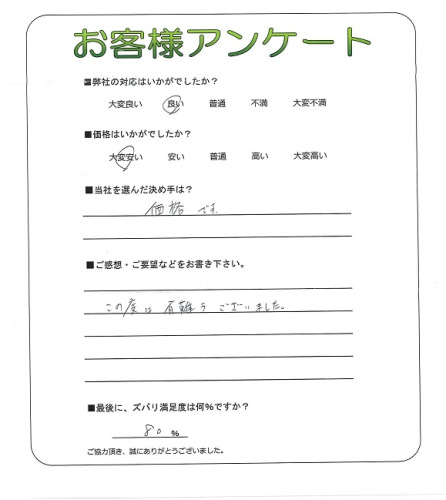 お客様アンケート
■弊社の対応はいかがでしたか?
大変良い 良い 普通 不満 大変不満
■価格はいかがでしたか?
大変安い 安い 普通 高い 大変高い
■当社を選んだ決め手は?
価格です。
■ご感想・ご要望などをお書き下さい。
この度は有難うございました。
■最後に、ズバリ満足度は何%ですか?
80 %
ご協力頂き、誠にありがとうございました。